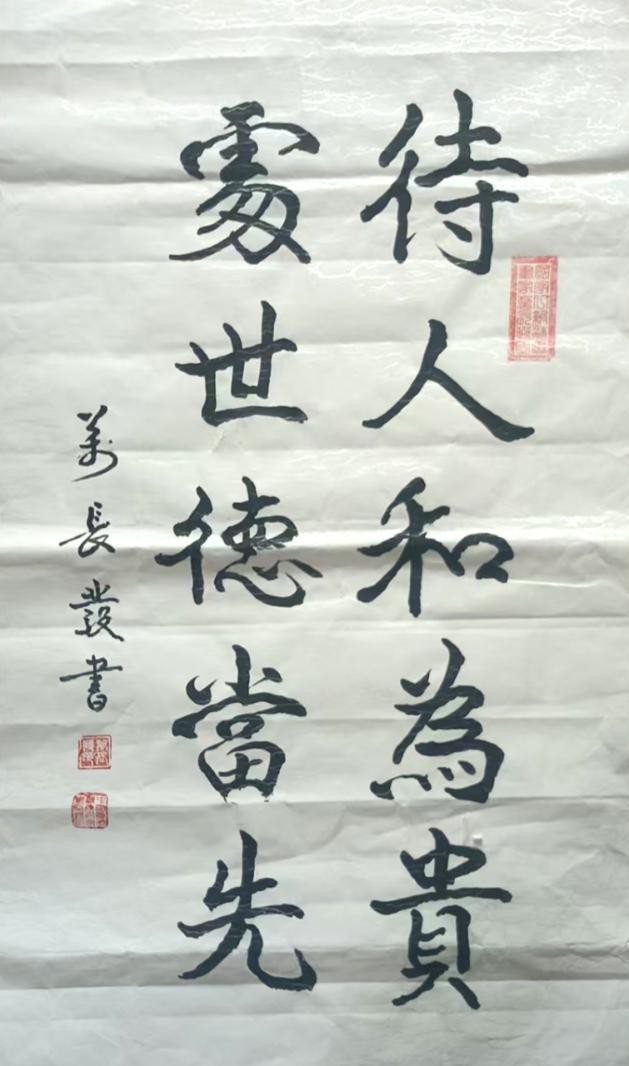 待人和為貴
處世德當先
萬長發書